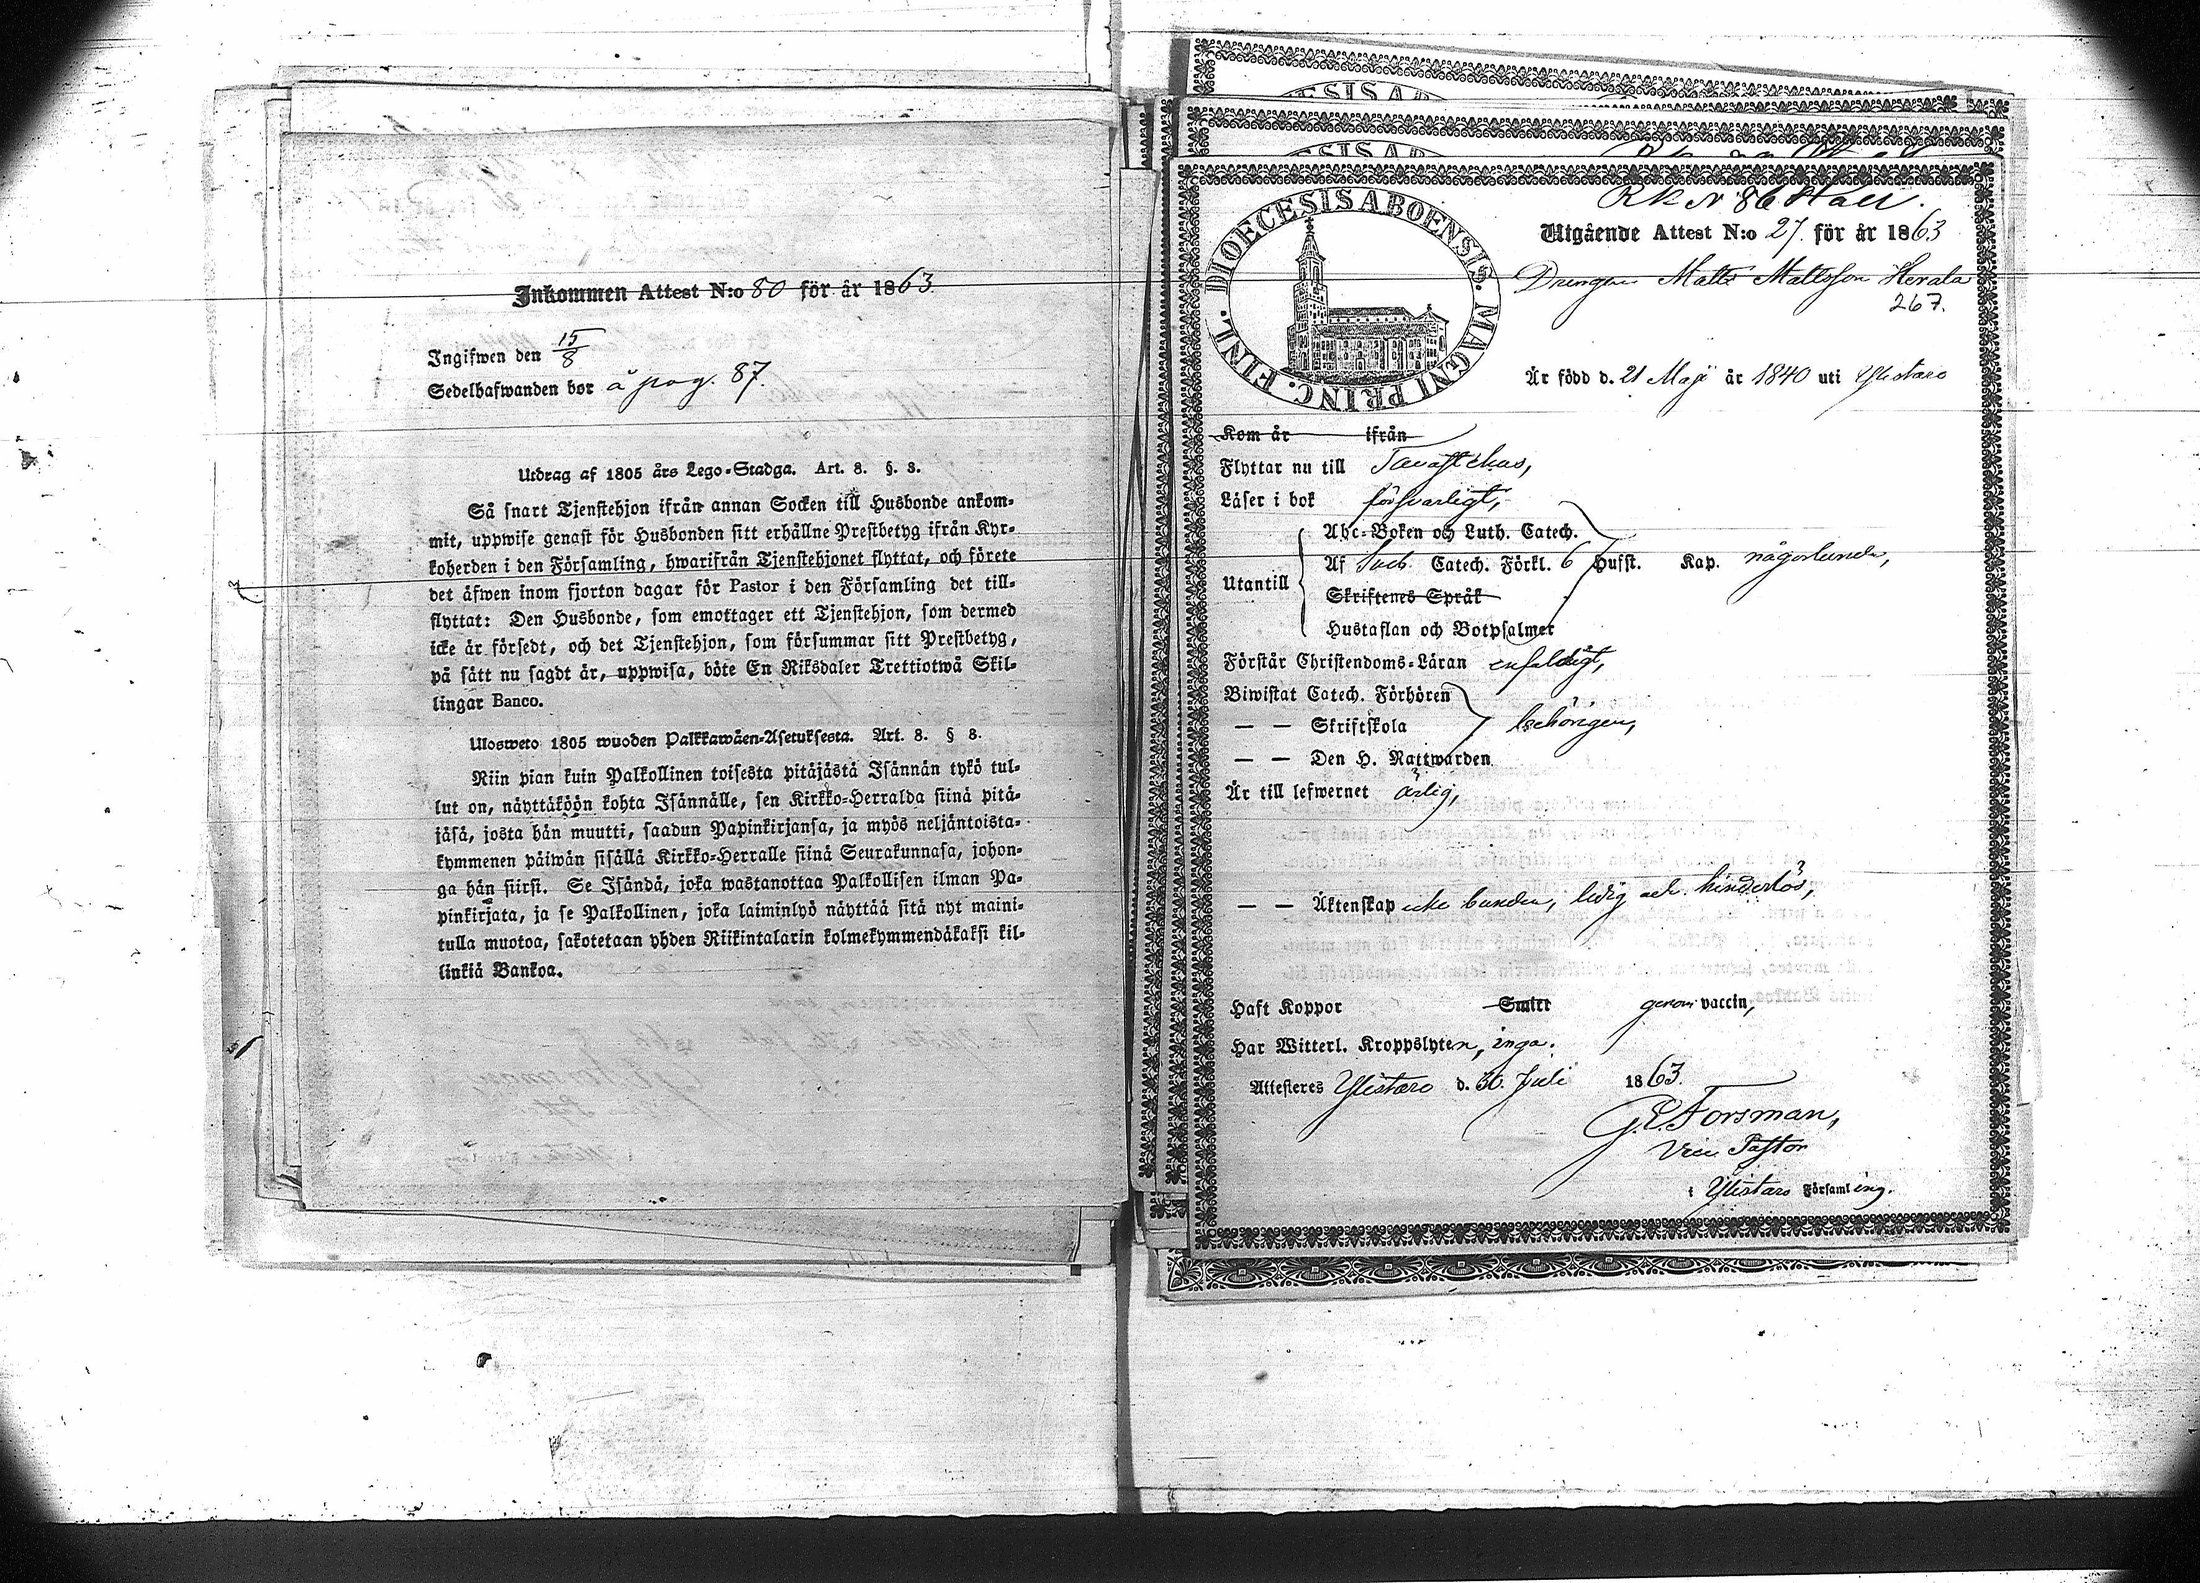 Inkommen Attest N:o 80 för år 1863.
Ingifwen den 15/8
Sedelhafwanden bor å pag. 87.
Utdrag af 1805 års Lego-Stadga. Art. 8. §. 8.
Så snart Tjenstehjon ifrån annan Socken till Husbonde ankom-
mit, uppwise genast för Husbonden sitt erhållne Prestbetyg ifrån Kyr-
koherden i den Församling, hwarifrån Tjenstehjonet flyttat, och förete
det äfwen inom fjorton dagar för Pastor i den Församling det till-
flyttat: Den Husbonde, som emottager ett Tjenstehjon, som dermed
icke är försedt, och det Tjenstehjon, som försummar sitt Prestbetyg,
på sätt nu sagdt är, uppwisa, böte En Riksdaler Trettiotwå Skil-
lingar Banco.
Ulosweto 1805 wuoden Palkkawäen-Asetuksesta. Art. 8. § 8.
Niin pian kuin Palkollinen toisesta pitäjästä Isännän tykö tul-
lut on, näyttäköön kohta Isännälle, sen Kirkko-Herralda siinä pitä-
jäsä, josta hän muutti, saadun Papinkirjansa, ja myös neljäntoista-
kymmenen päiwän sisällä Kirkko-Herralle siinä Seurakunnasa, johon-
ga hän siirsi. Se Isändä, joka wastanottaa Palkollisen ilman Pa-
pinkirjata, ja se Palkollinen, joka laiminlyö näyttää sitä nyt maini-
tulla muotoa, sakotetaan yhden Riikintalarin kolmekymmendäkaksi kil-
linkiä Bankoa.
DIOECESIS ABOENSIS. MAGNI PRINC. FINL.
Utgående Attest N:o 27. för år 1863
Drengen Matts Mattsson Herala
267.
Är född d. 21 Maji år 1840 uti Ylistaro
Kom år ifrån
Flyttar nu till Tavastehus,
Läser i bok försvarligt,
Abc-Boken och Luth. Catech.
Utantill Af Sveb. Catech. Förkl. 6 Hufst. Kap. någorlunda,
Skriftenes Språk
Hustaflan och Botpsalmer
Förstår Christendoms-Läran enfaldigt,
Biwistat Catech. Förhören
— — Skriftskola behörigen,
— — Den H. Nattwarden
Är till lefwernet ärlig,
— — Äktenskap icke bunden, ledig och hinderlös,
Haft Koppor Smitt genom vaccin,
Har Witterl. Kroppslyten, inga.
Attesteres Ylistaro d. 30. Juli 1863.
G. E. Forsman,
Vice Pastor
i Ylistaro Församling.